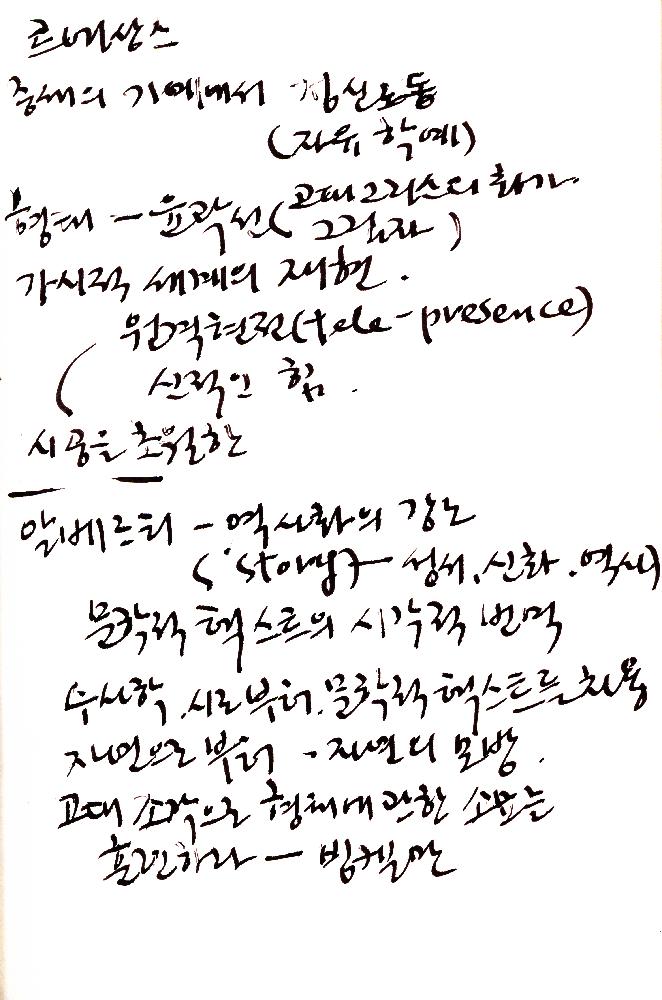 르네상스
중세의 기예에서 정신노동
(자유 학예)
형태 – 윤곽선(고대그리스의 화가.
그림자)
가시적 세계의 재현.
원격현전(tele-presence)
신적인 힘.
시공을 초월한
알베르티 – 역사화의 강조
('story) – 성서, 신화, 역사)
문학적 텍스트의 시각적 번역
수사학, 시로부터, 문학적 텍스트를 차용
자연으로부터 - 자연의 모방.
고대 조각으로 형태에 관한
훈련하라 – 빙켈만